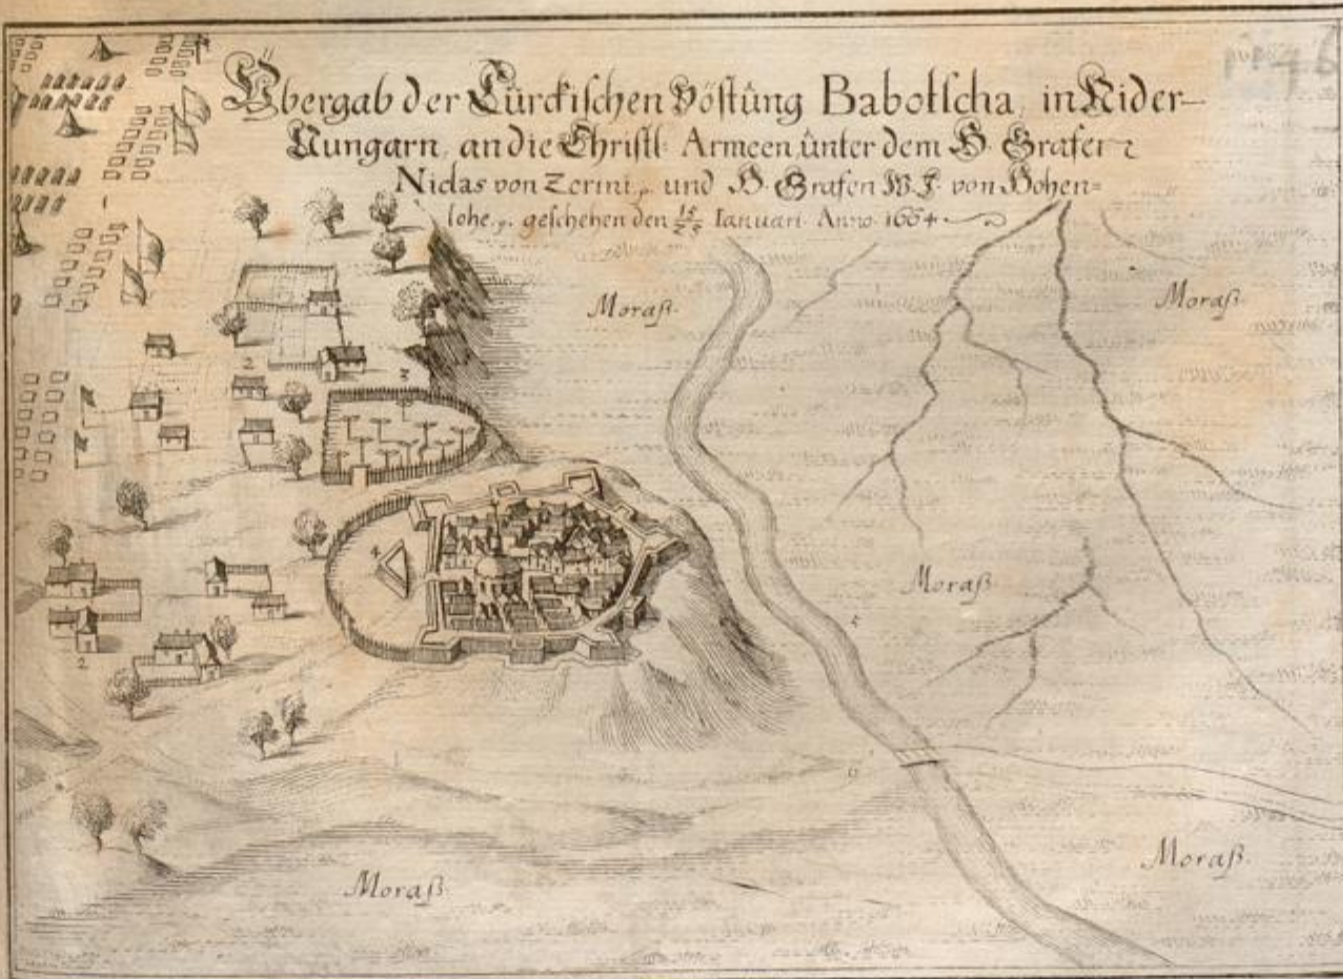 Übergab der Türckischen Vöstung Babotscha, in Nider-
Vungarn, an die Christl: Armeen, unter dem H. Grafen
Niclas von Zerini, und H. Grafen W. J. von Hohen=
lohe, geschehen den 15/25 Ianuari Anno 1664
Moraß.
Moraß.
2
3
4
Moraß
5
2
6
Moraß.
Moraß.